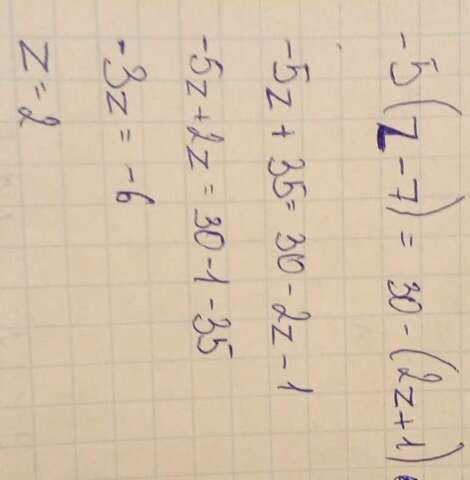 -5(z-7) = 30-(2z+1)
-5z + 35 = 30 - 2z - 1
-5z + 2z = 30 - 1 - 35
-3z = -6
z = 2